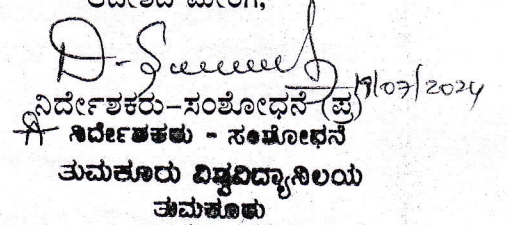 ಆದೇಶದ ಮೇರೆಗೆ,
19/07/2024
ನಿರ್ದೇಶಕರು-ಸಂಶೋಧನೆ (ಪ್ರ)
ನಿರ್ದೇಶಕರು - ಸಂಶೋಧನೆ
ತುಮಕೂರು ವಿಶ್ವವಿದ್ಯಾನಿಲಯ
ತುಮಕೂರು